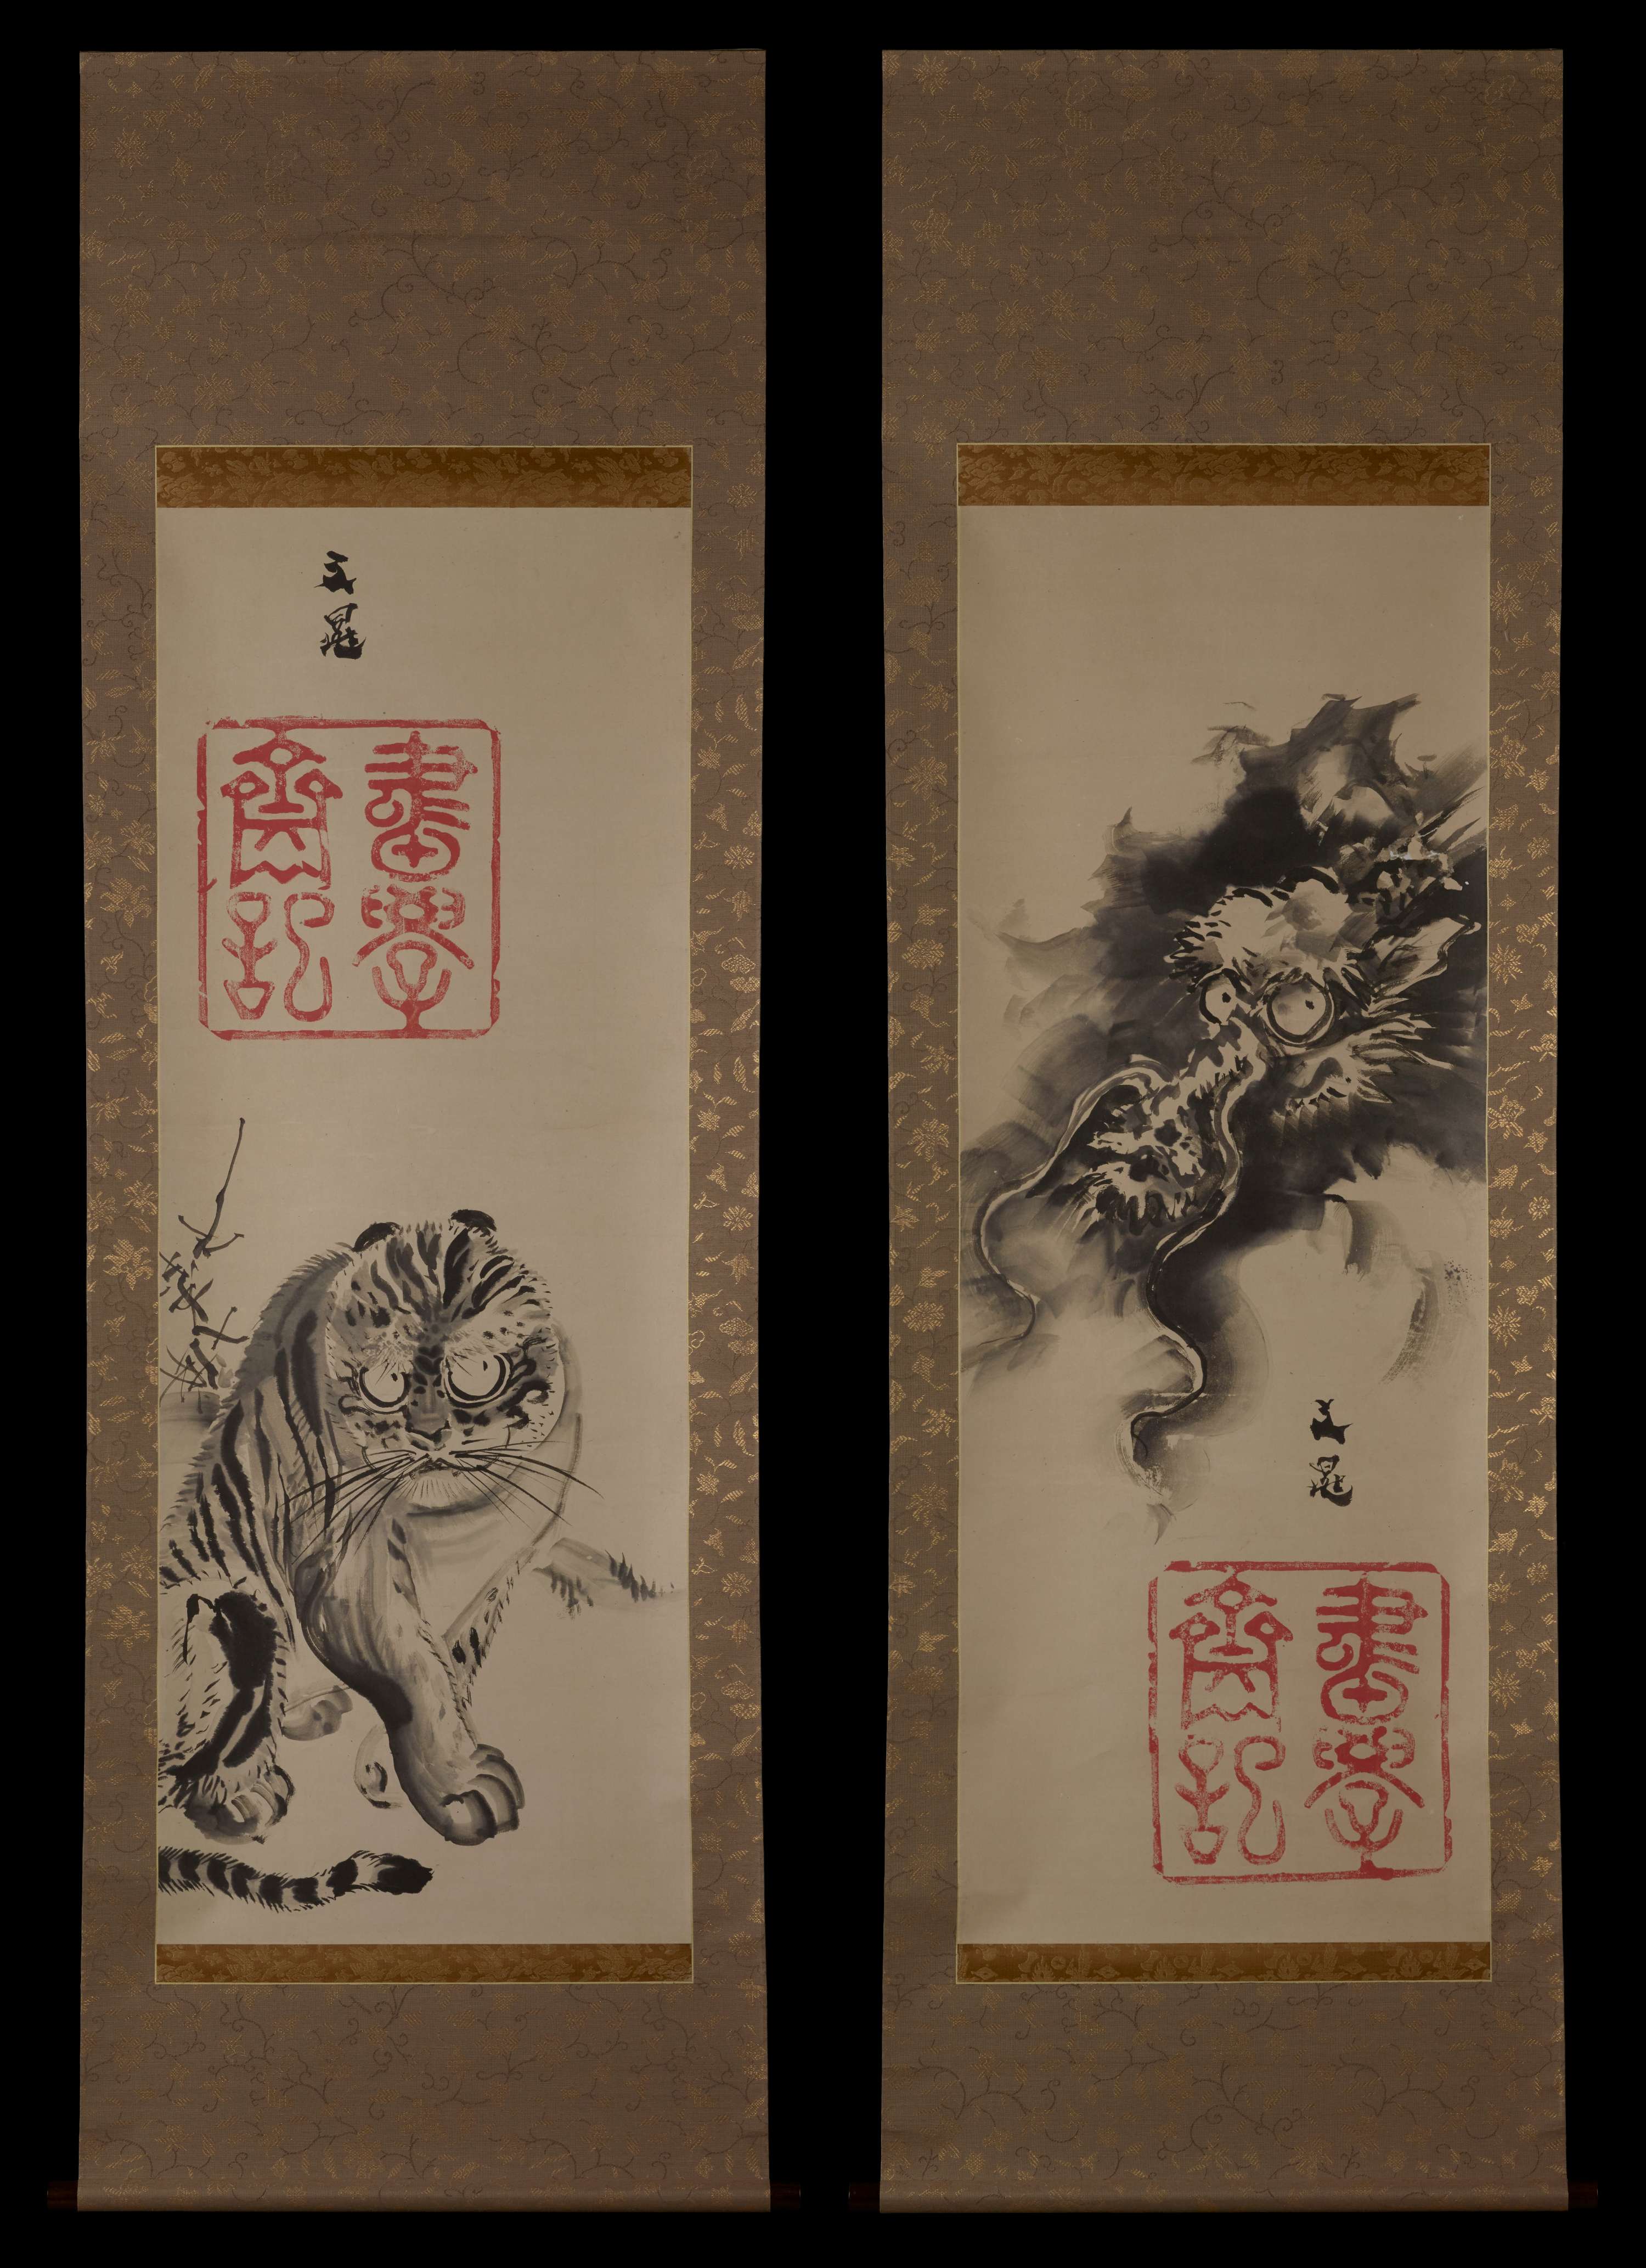 文晁
畫學
齋記
文晁
畫學
齋記